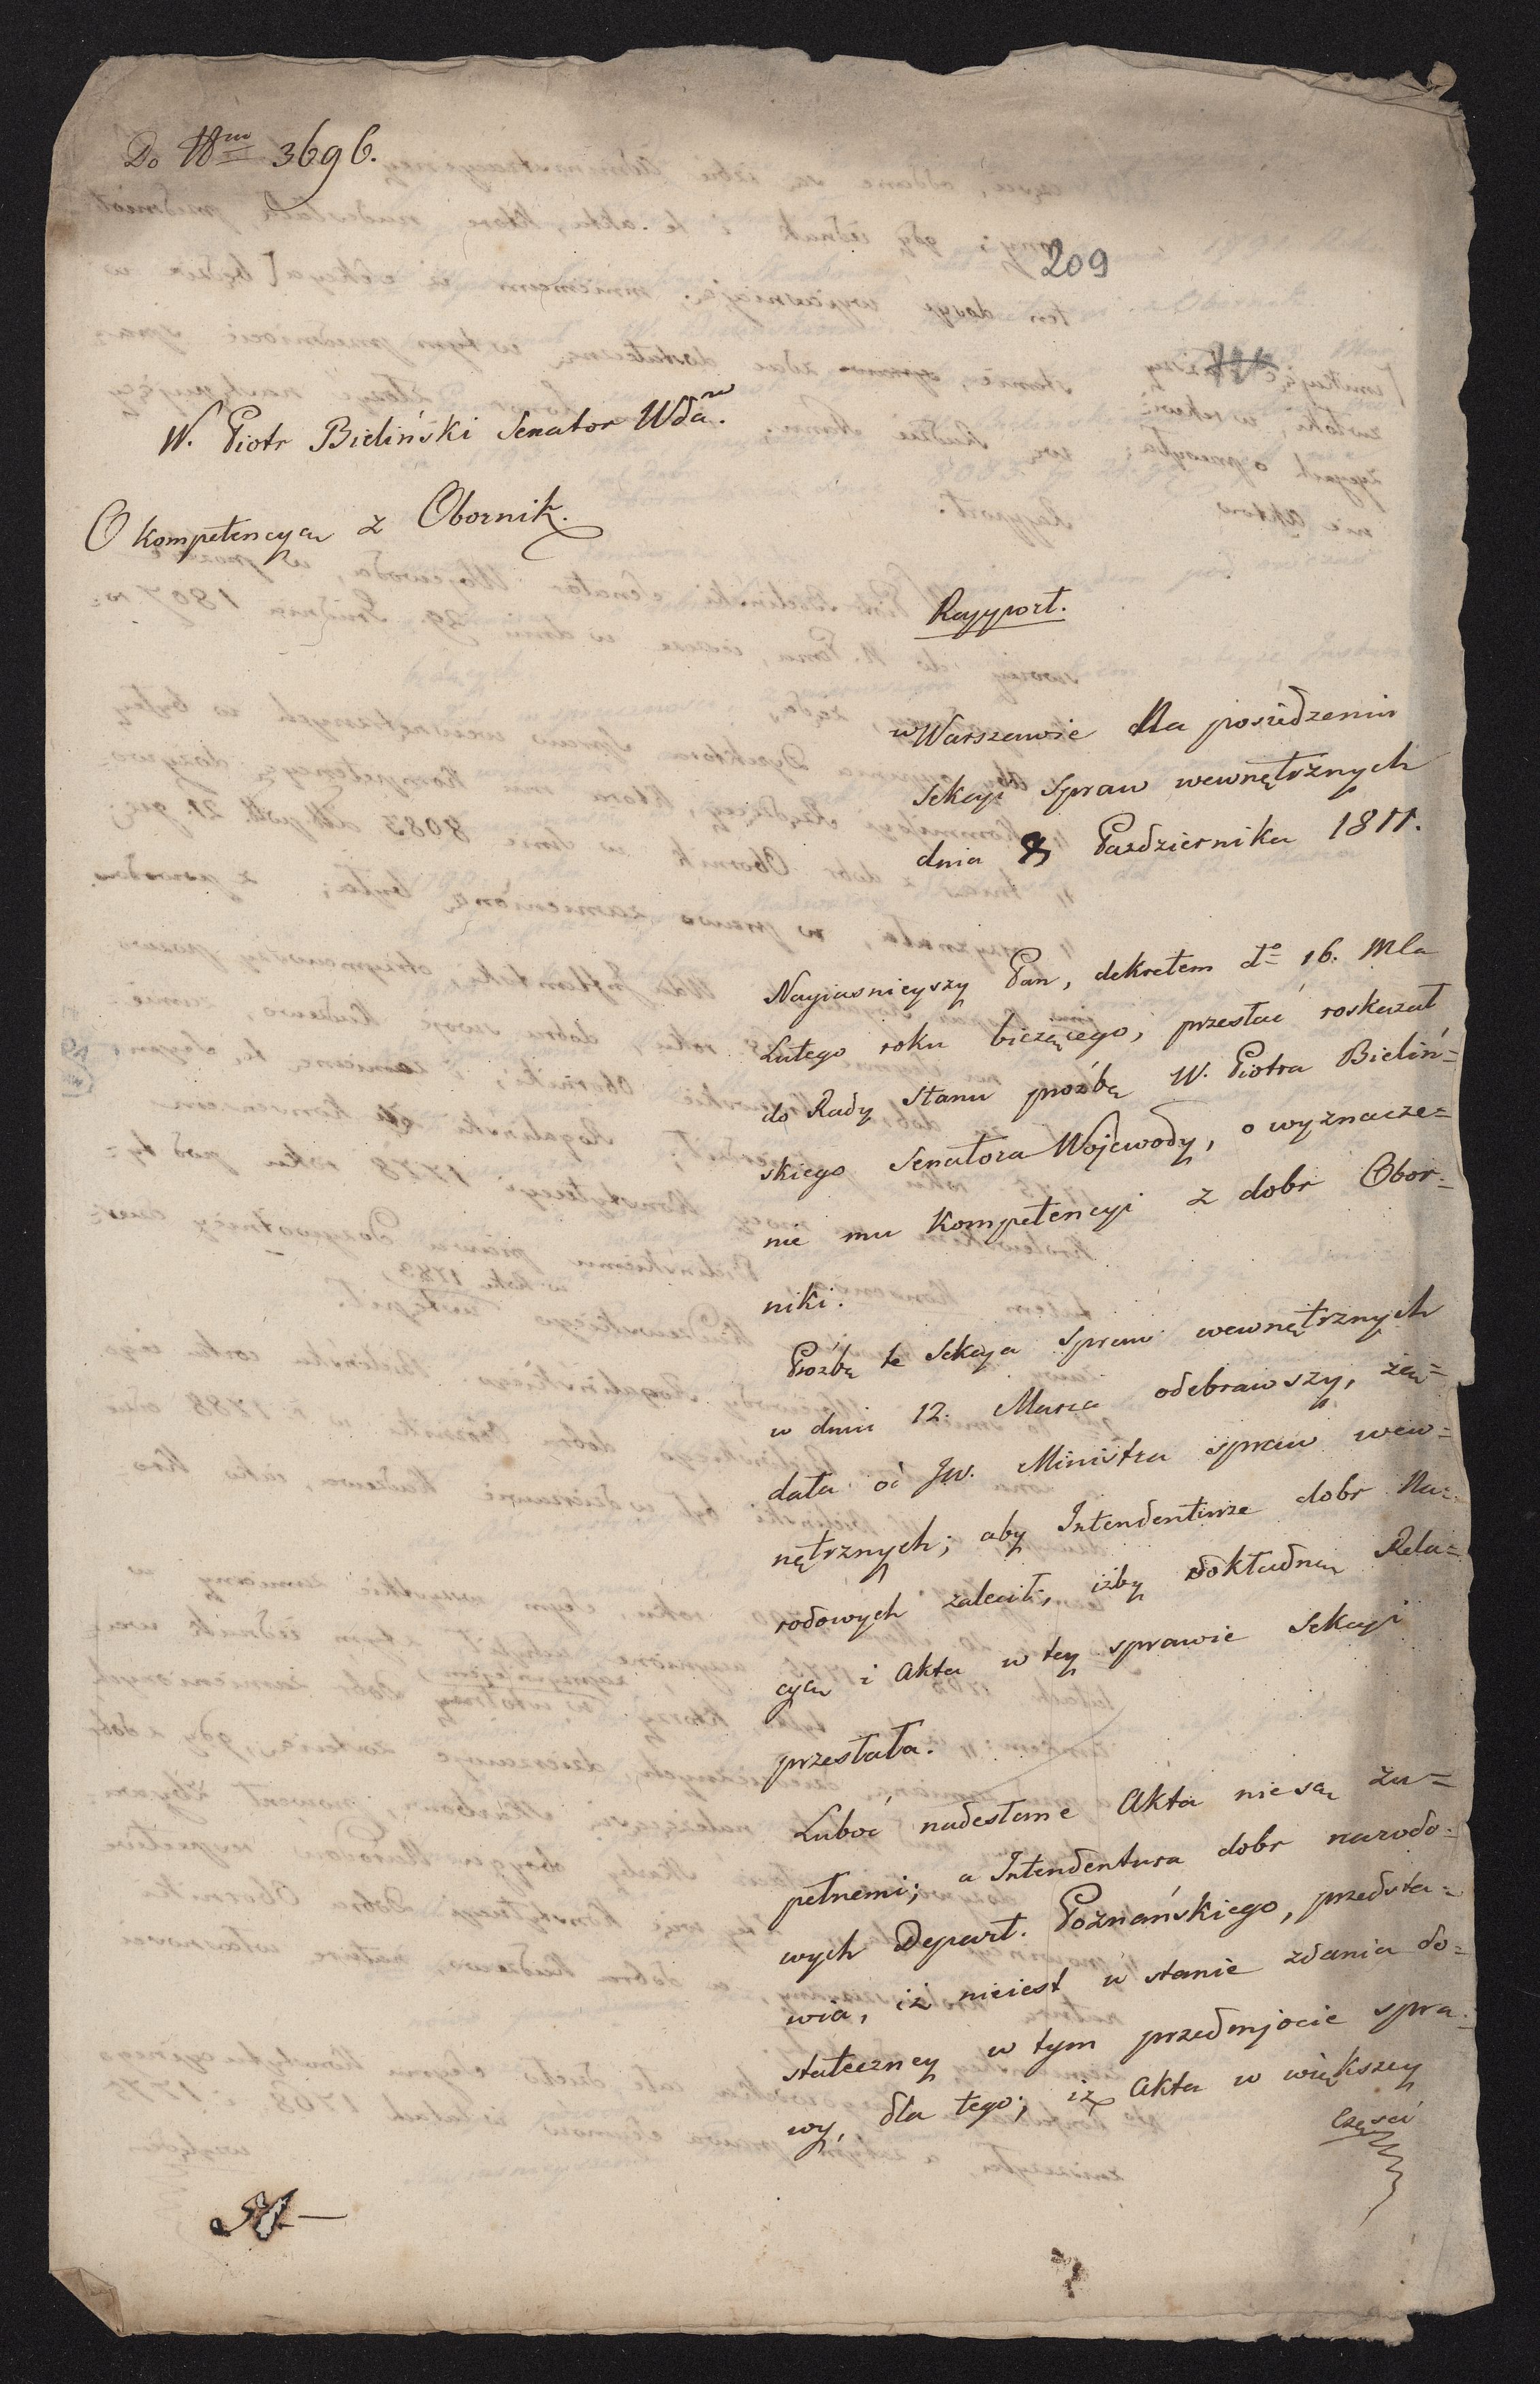 Do Nro 3696.
209
W. Piotr Bieliński Senator Wda.
O kompetencyą z Obornik.
Rapport.
w Warszawie Na posiedzeniu
Sekcyi Spraw wewnętrznych
dnia 8 Października 1811.
Nayiasnieyszy Pan, dekretem do 16. Mca
Lutego roku bieżącego, przesłać roskazał
do Rady Stanu prozbę W. Piotra Bieliń=
skiego Senatora Wojewody, o wyznacze=
nie mu Kompetencyi z dobr Obor=
niki.
Prozbę te Sekcya Spraw wewnętrznych
w dniu 12. Marca odebrawszy, żą=
dała od JW. Ministra spraw wew=
nętrznych; aby Intendenturze dobr Na=
rodowych zalecił, iżby dokładną Rela=
cyą i Akta w tey sprawie Sekcyi
przesłała.
Luboć nadesłane Akta nie są zu=
pełnemi; a Intendentura dobr narodo=
wych Depart. Poznańskiego, przedsta=
wia, iż nieiest w stanie zdania do=
stateczney w tym przedmjocie spra=
wy, dla tego; iż Akta w większey
Części